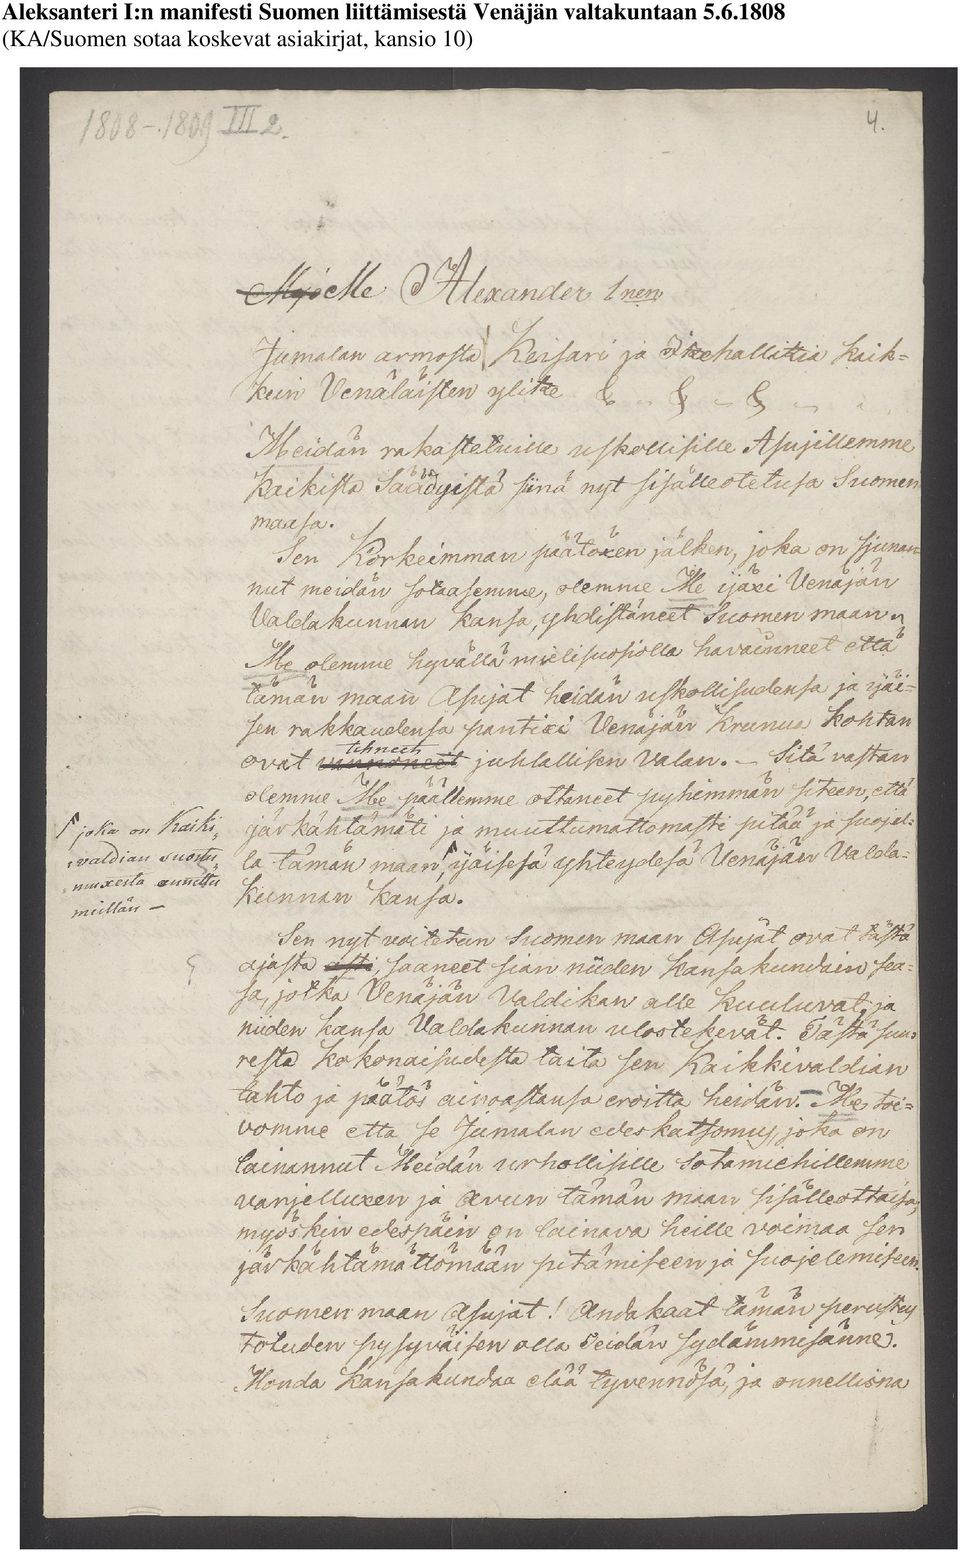 Aleksanteri I:n manifesti Suomen liittämisestä Venäjän valtakuntaan 5.6.1808
(KA/Suomen sotaa koskevat asiakirjat, kansio 10)
1808-1809 III 2.
4.
Me Alexander 1nen
Jumalan armosta Keisari ja Itzehallitzia kaik=
kein Venäläisten ylitze &-&-&-
Meidän rakastetuille uskollisille Asujillemme
Kaikista Säädyistä siinä nyt sisälleotetusa Suomen
maasa.
Sen Korkeimman päätöxen jälken, joka on sjunan=
nut meidän sotaasemme, olemme Me ijäxi Venäjän
Valdakunnan kansa, yhdistäneet Suomen maan.
Me olemme hyvällä mielisuosiolla havainneet että
tämän maan Asujat heidän uskollisudensa ja ijäi=
sen rakkaudensa pantixi Venäjän Krunua kohtan
ovat tehneet juhlallisen Valan. - Sitä vastan
olemme Me päällemme ottaneet pyhimmän siteen, että
järkähtämäti ja muuttumattomasti pitää ja suojel=
la tämän maan, ijäisesä yhteydesä Venäjän Valda=
kunnan kansa.
joka on Kaiki=
valdian suostu=
muxesta annettu
meillän -
Sen nyt voitetun Suomen maan Asujat ovat tästä
ajasta asti, saaneet sian niiden kansakundain sea=
sa, jotka Venäjän Valdikan alle kuuluvat, ja
niiden kansa Valdakunnan ulostekevät. Tästä suu=
resta kokonaisudesta taita sen Kaikkivaldian
tahto ja päätös ainoastansa eroitta heidän. - Me toi=
vomme etta se Jumalan edeskatsomus, joka on
lainannut Meidän urhollisille Sotamiehillemme
varjelluxen ja avun tämän maan sisälleottaisa,
myöskin edespäin on lainava heille voimaa sen
järkähtämättömään pitämiseen ja suojelemiseen.
Suomen maan Asujat! Andakaat tämän perustus
totuden pysyväisen olla Teidän sydämmisänne.
Monda Kansakundaa elää tyvennösä, ja onnellisna